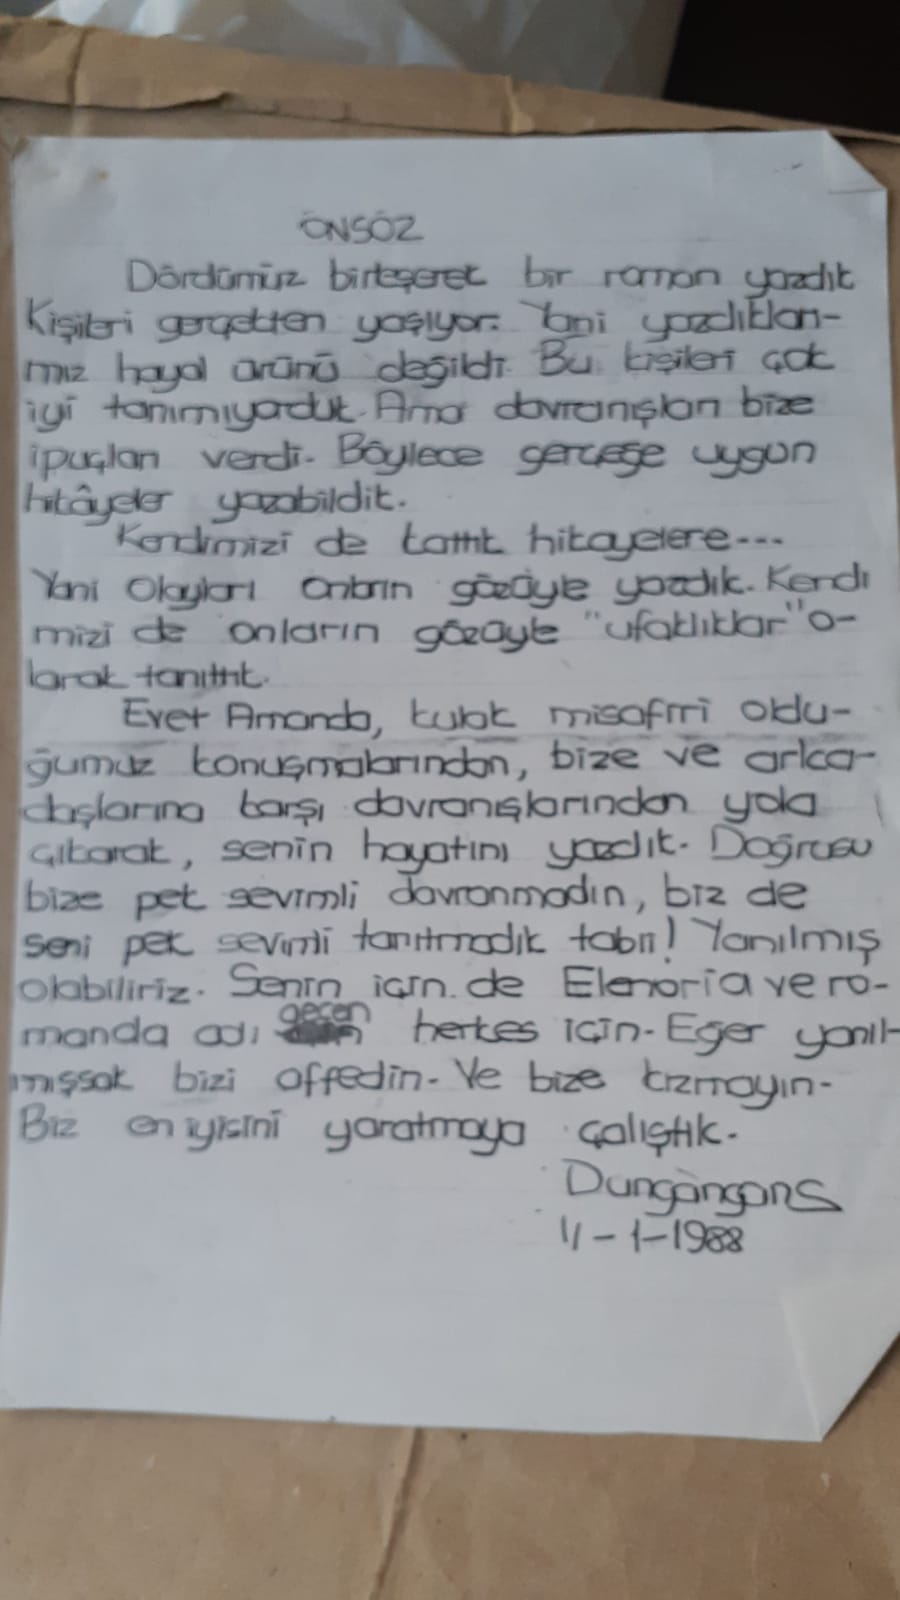 ÖNSÖZ
Dördümüz birleşerek bir roman yazdık
Kişileri gerçekten yaşıyor. Yani yazdıkları-
mız hayal ürünü değildi. Bu kişileri çok
iyi tanımıyorduk. Ama davranışları bize
ipuçları verdi. Böylece gerçeğe uygun
hikâyeler yazabildik.
Kendimizi de kattık hikayelere...
Yani Olayları onların gözüyle yazdık. Kendi
mizi de onların gözüyle "ufaklıklar" o-
larak tanıttık.
Evet Amanda, kulak misafiri oldu-
ğumuz konuşmalarından, bize ve arka-
daşlarına karşı davranışlarından yola
çıkarak, senin hayatını yazdık. Doğrusu
bize pek sevimli davranmadın, biz de
seni pek sevimli tanıtmadık tabii! Yanılmış
olabiliriz. Senin için de Elenoria ve ro-
manda adı geçen herkes için. Eğer yanıl-
mışsak bizi affedin. Ve bize kızmayın.
Biz en iyisini yaratmaya çalıştık.
Dungangans
11-1-1988